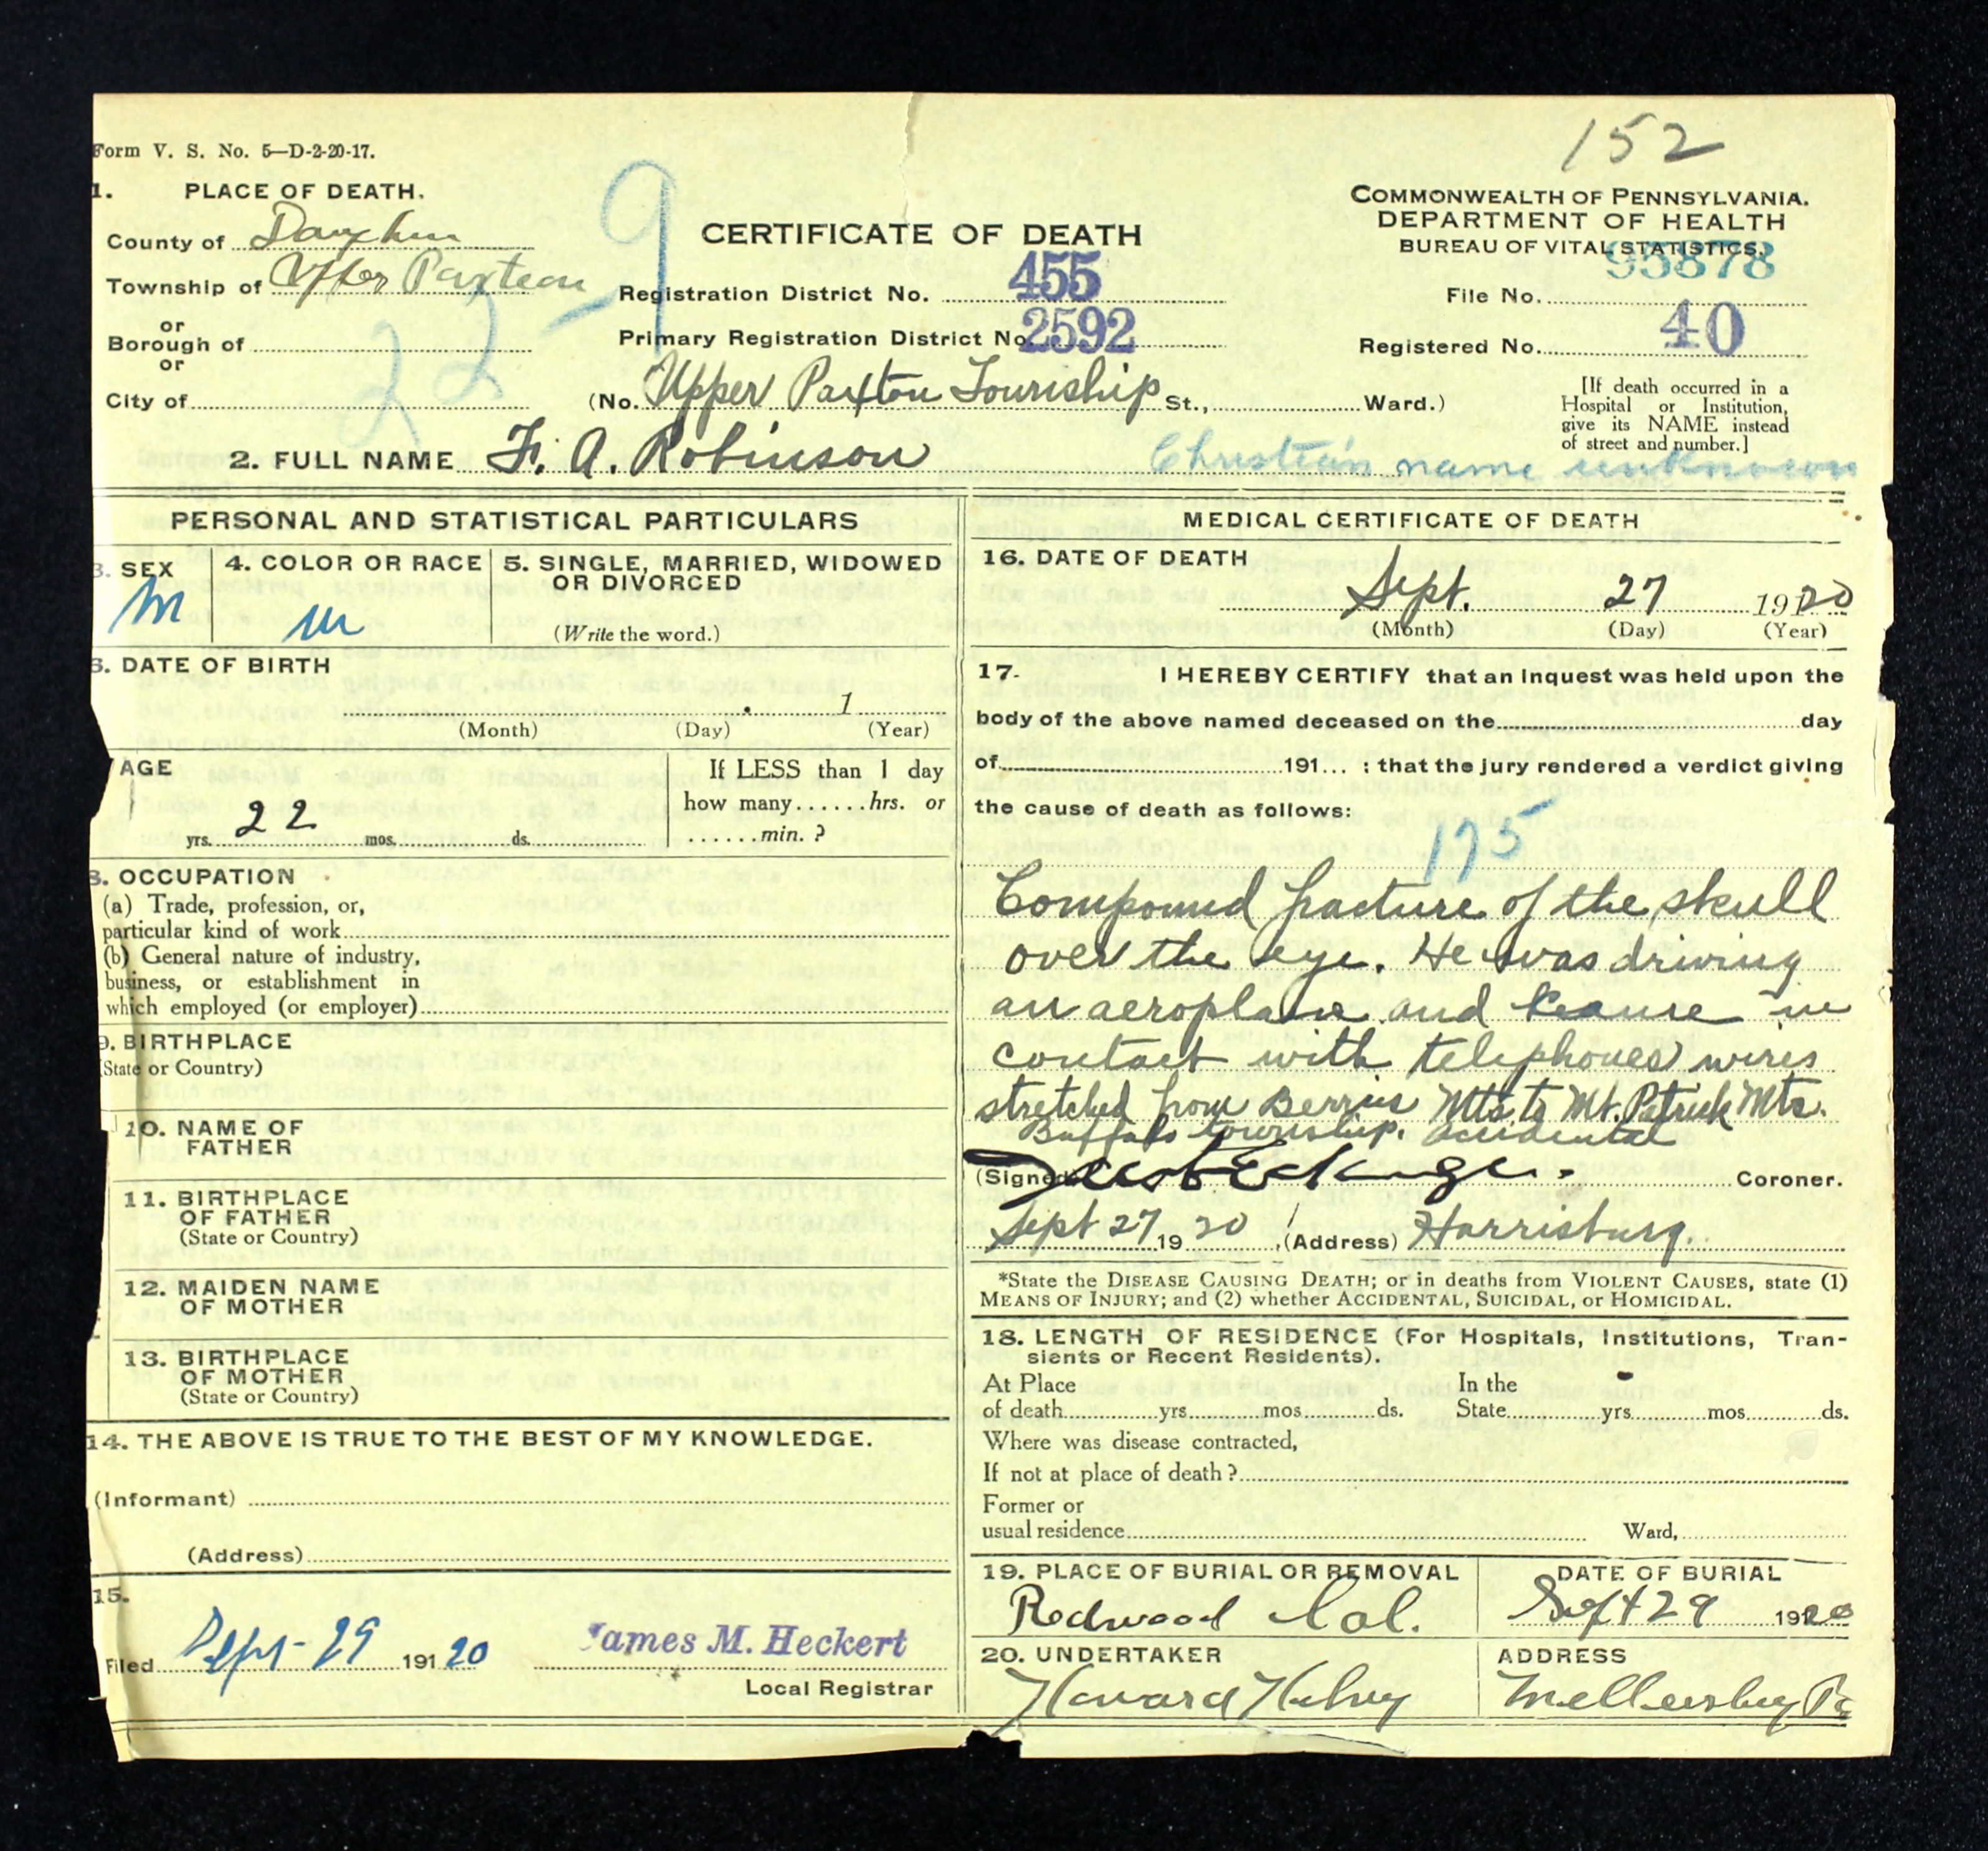 152
Form V. S. No. 5—D-2-20-17.
1. PLACE OF DEATH.
County of Dauphin
Township of Upper Paxteon
or
Borough of
or
City of
22-9
CERTIFICATE OF DEATH
Registration District No. 455
Primary Registration District No. 2592
(No. Upper Paxton Township St., Ward.)
COMMONWEALTH OF PENNSYLVANIA.
DEPARTMENT OF HEALTH
BUREAU OF VITAL STATISTICS.
File No. 95878
Registered No. 40
[If death occurred in a
Hospital or Institution,
give its NAME instead
of street and number.]
2. FULL NAME F. A. Robinson Christian name unknown
PERSONAL AND STATISTICAL PARTICULARS
3. SEX
M
4. COLOR OR RACE
W
5. SINGLE, MARRIED, WIDOWED
OR DIVORCED
(Write the word.)
6. DATE OF BIRTH
1
(Month) (Day) (Year)
7 AGE
22
yrs. mos. ds.
If LESS than 1 day
how many......hrs. or
......min. ?
8. OCCUPATION
(a) Trade, profession, or,
particular kind of work
(b) General nature of industry,
business, or establishment in
which employed (or employer)
9. BIRTHPLACE
(State or Country)
10. NAME OF
FATHER
11. BIRTHPLACE
OF FATHER
(State or Country)
12. MAIDEN NAME
OF MOTHER
13. BIRTHPLACE
OF MOTHER
(State or Country)
14. THE ABOVE IS TRUE TO THE BEST OF MY KNOWLEDGE.
(Informant)
(Address)
15.
Filed Sept-29 19120 James M. Heckert
Local Registrar
MEDICAL CERTIFICATE OF DEATH
16. DATE OF DEATH
Sept. 27 19120
(Month) (Day) (Year)
17. I HEREBY CERTIFY that an inquest was held upon the
body of the above named deceased on the day
of 191... ; that the jury rendered a verdict giving
the cause of death as follows:
175
Compound fracture of the skull
over the eye. He was driving
an aeroplane and came in
contact with telephones wires
stretched from Berries Mts. to Mt. Patrick Mts.
Buffalo township. accidental
(Signed) Coroner.
Sept 27 1920, (Address) Harrisburg.
*State the DISEASE CAUSING DEATH; or in deaths from VIOLENT CAUSES, state (1)
MEANS OF INJURY; and (2) whether ACCIDENTAL, SUICIDAL, or HOMICIDAL.
18. LENGTH OF RESIDENCE (For Hospitals, Institutions, Tran-
sients or Recent Residents).
At Place In the
of death yrs. mos. ds. State yrs. mos. ds.
Where was disease contracted,
If not at place of death ?
Former or
usual residence Ward,
19. PLACE OF BURIAL OR REMOVAL
Redwood Cal.
DATE OF BURIAL
Sept 29 1920
20. UNDERTAKER
Howard
ADDRESS
Millersburg Pa